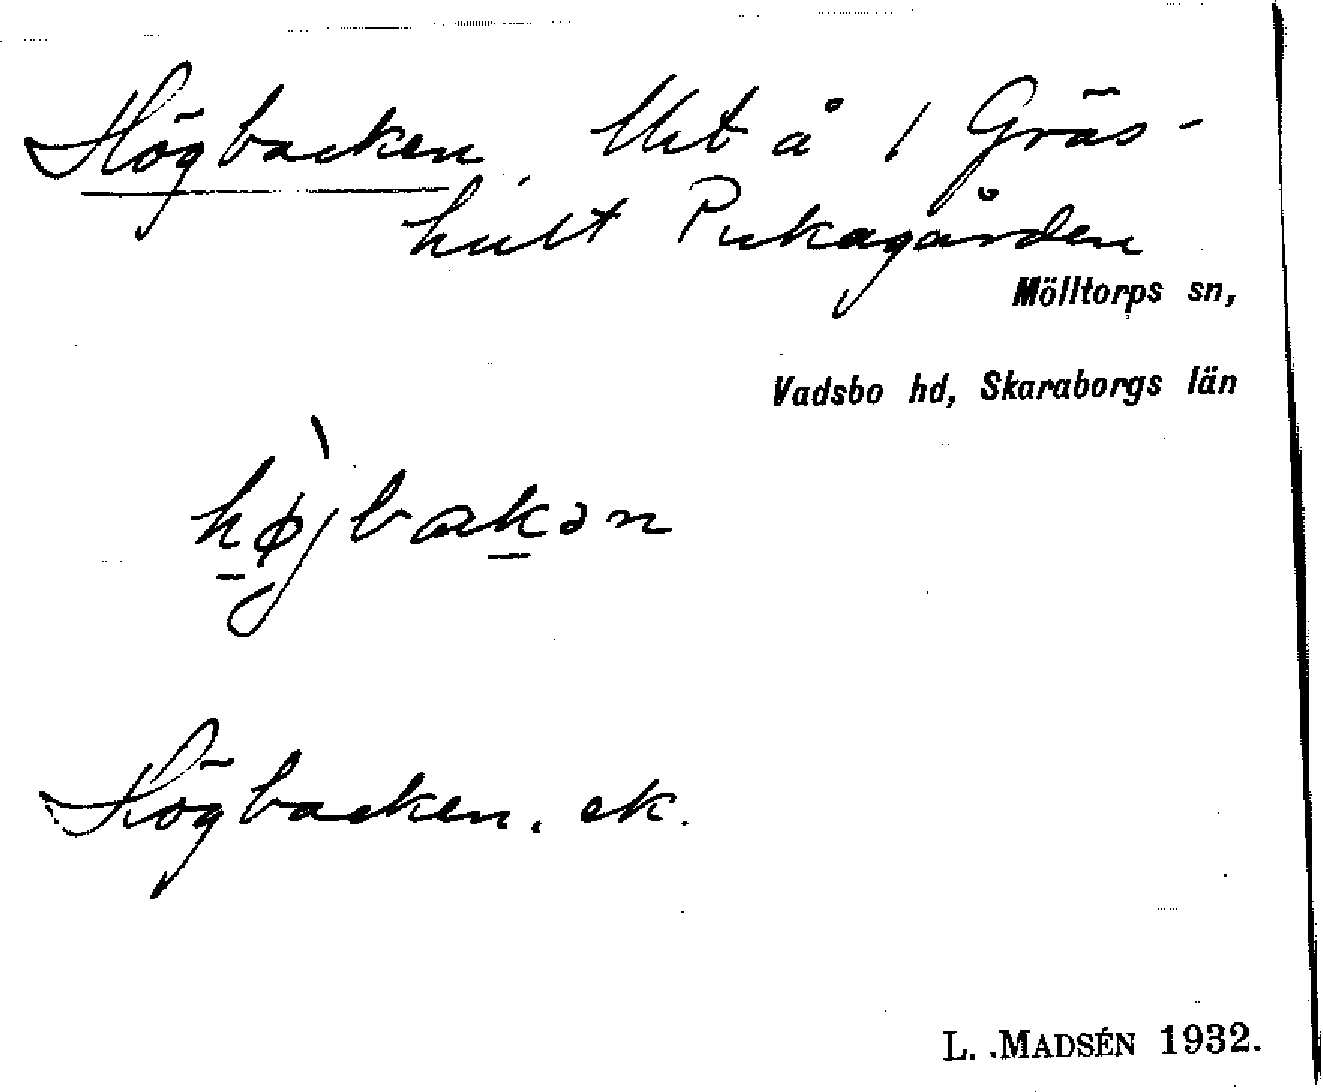 Högbacken, Lht å 1 Gräs-
hult Pukagården
Mölltorps sn,
Vadsbo hd, Skaraborgs län
hø̀jbakən
Högbacken. ek.
L. MADSÉN 1932.